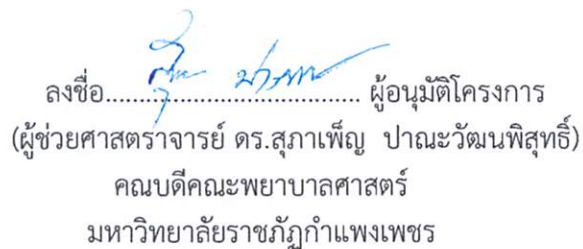 ลงชื่อ.......................................... ผู้อนุมัติโครงการ
(ผู้ช่วยศาสตราจารย์ ดร.สุภาเพ็ญ ปาณะวัฒนพิสุทธิ์)
คณบดีคณะพยาบาลศาสตร์
มหาวิทยาลัยราชภัฏกำแพงเพชร